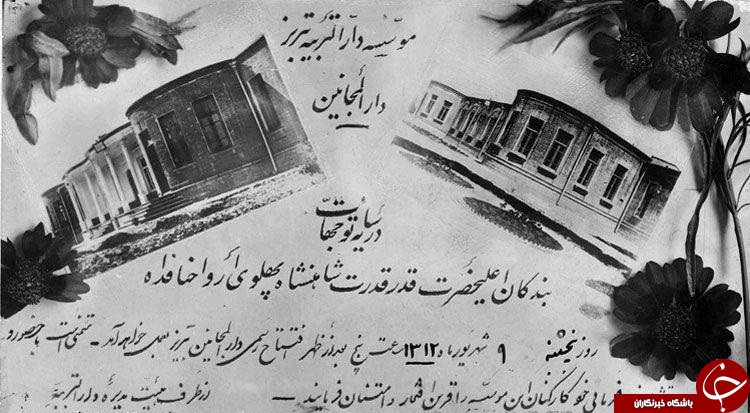 مؤسسه دار التربیه تبریز
دار المجانین
در سایه توجهات
بندگان اعلیحضرت قدر قدرت شاهنشاه پهلوی ارواحنا فداه
روز پنجشنبه ۹ شهریور ماه ۱۳۱۲ ساعت پنج بعد از ظهر افتتاح رسمی دار المجانین تبریز بعمل خواهد آمد - متمنی است با حضور و
فرمائی خود کارکنان این مؤسسه را قرین افتخار و امتنان فرمایند -
از طرف هیئت مدیره دار التربیه
باشگاه خبرنگاران